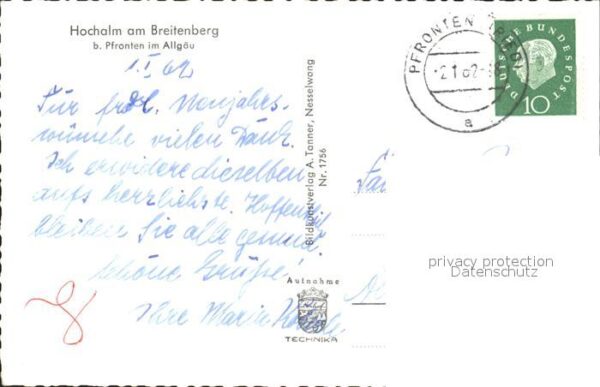 Hochalm am Breitenberg
b. Pfronten im Allgäu
1.I.62
Für frdl. Neujahrs-
wünsche vielen Dank.
Ich erwidere dieselben
aufs herzlichste. Hoffentl.
bleiben Sie alle gesund.
Schöne Grüße!
Ihre Maria
Bildkunstverlag A. Tanner, Nesselwang
Nr. 1756
Aufnahme
TECHNIKA
PFRONTEN (RIED)
2.1.62
a
DEUTSCHE BUNDESPOST
10
privacy protection
Datenschutz